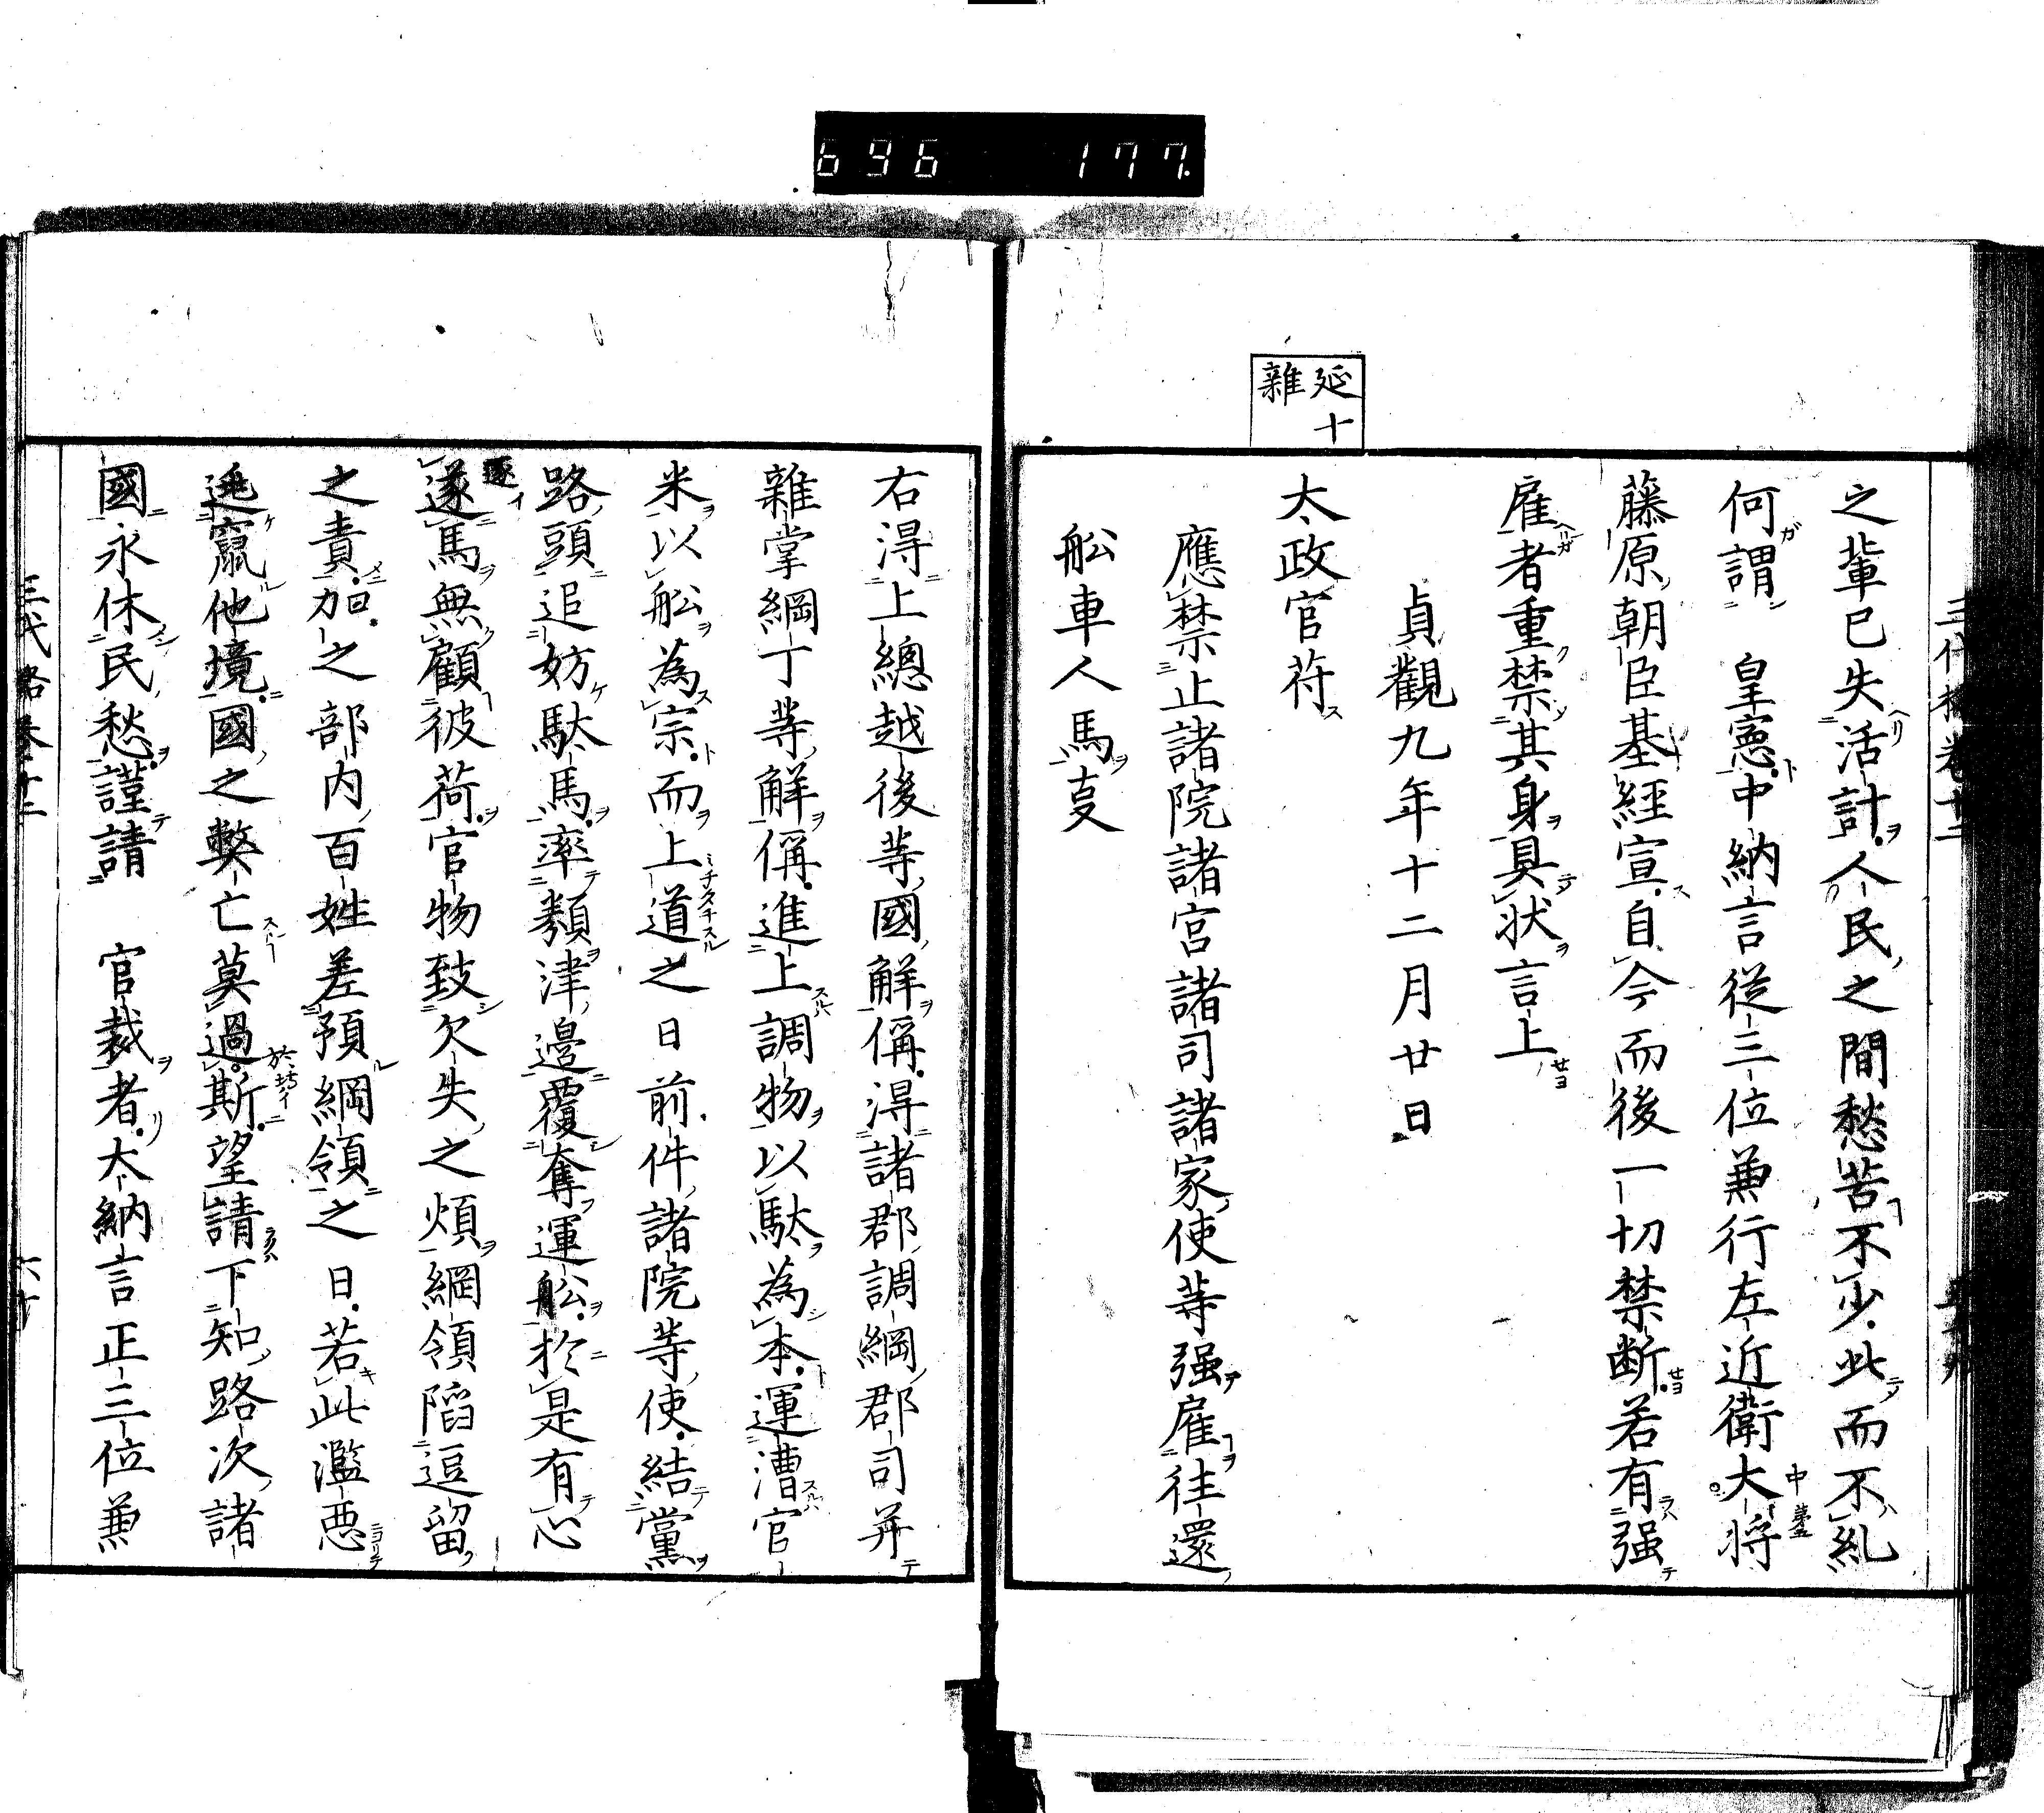 696 177
延十
雜
之輩已失活計人民之間愁苦不少此而不糺
何謂 皇憲中納言從三位兼行左近衛大将
藤原朝臣基經宣自今而後一切禁断若有强
雇者重禁其身具状言上
貞觀九年十二月廿日
太政官苻
應禁止諸院諸宮諸司諸家使等强雇往還
舩車人馬叓
右得上總越後等國解偁得諸郡調綱郡司并
雜掌綱丁等解偁進上調物以駄為本運漕官
米以舩為宗而上道之日前件諸院等使結黨
路頭追妨駄馬率類津邊覆奪運舩於是有心
遂馬無顧彼荷官物致欠失之煩綱領蹈逗留
之責加之部内百姓差預綱領之日若此濫悪
逃竄他境國之弊亡莫過斯望請下知路次諸
國永休民愁謹請 官裁者大納言正三位兼